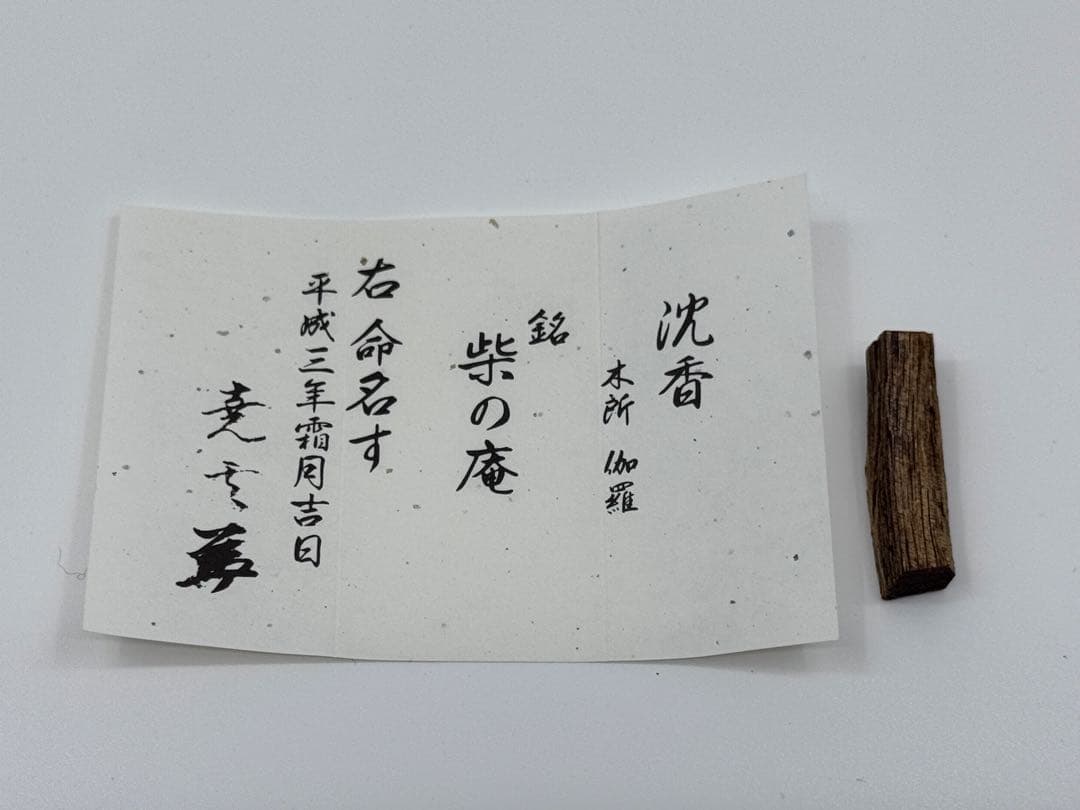 沈香
木所 伽羅
銘
柴の庵
右 命名す
平成三年霜月吉日
堯雲